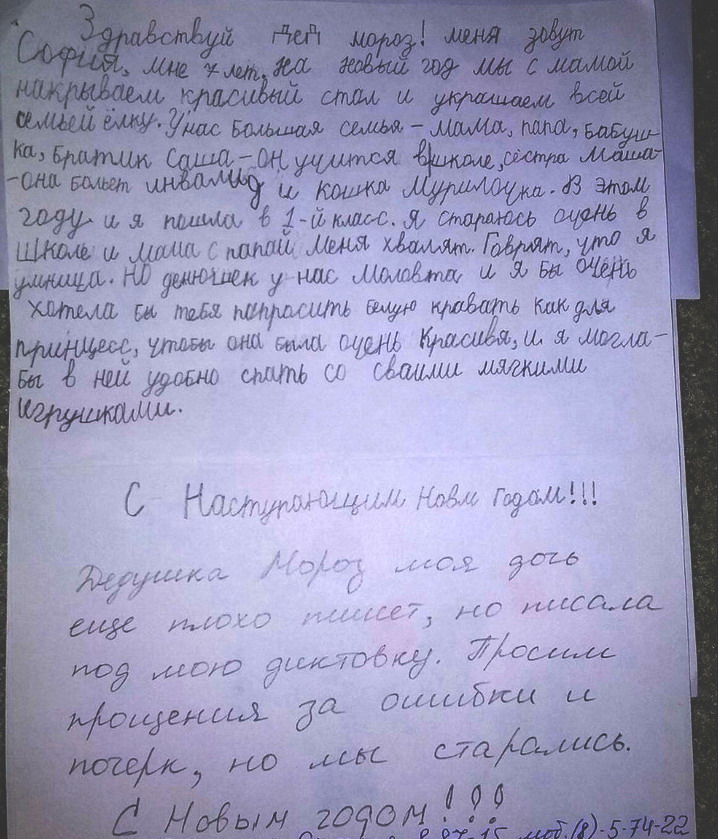 Здравствуй дед мороз! меня зовут
София, мне 7 лет, на новый год мы с мамой
накрываем красивый стол и украшаем всей
семьей ёлку. У нас большая семья – мама, папа, бабуш-
ка, братик Саша – он учится в школе, сестра Маша-
-она бальет инвалид и кошка Мурилочка. В этом
году и я пошла в 1-й класс. Я стараюсь очень в
школе и мама с папай меня хвалят. Говрят, что я
умница. Но денюшек у нас маловта и я бы очень
хотела бы тебя папрасить белую кравать как для
принцесс, чтобы она была очень красивя, и я могла-
бы в ней удобно спать со сваими мягкими
игрушками.
С Наступающим Новм Годом!!!
Дедушка Мороз моя дочь
еще плохо пишет, но писала
под мою диктовку. Просим
прощения за ошибки и
почерк, но мы старались.
С Новым годом!!!
моб.(8)-5-74-22